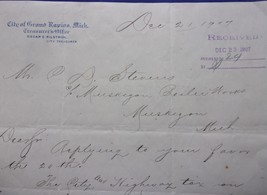 City of Grand Rapids, Mich.
Treasurer's Office
Dec 21 1907
RECEIVED
DEC 23 1907
Mr. C. D. Stevens
% Muskegon Boiler Works
Muskegon
Mich
Dear Sir
Replying to your favor
the 20th.
The City & Highway tax on